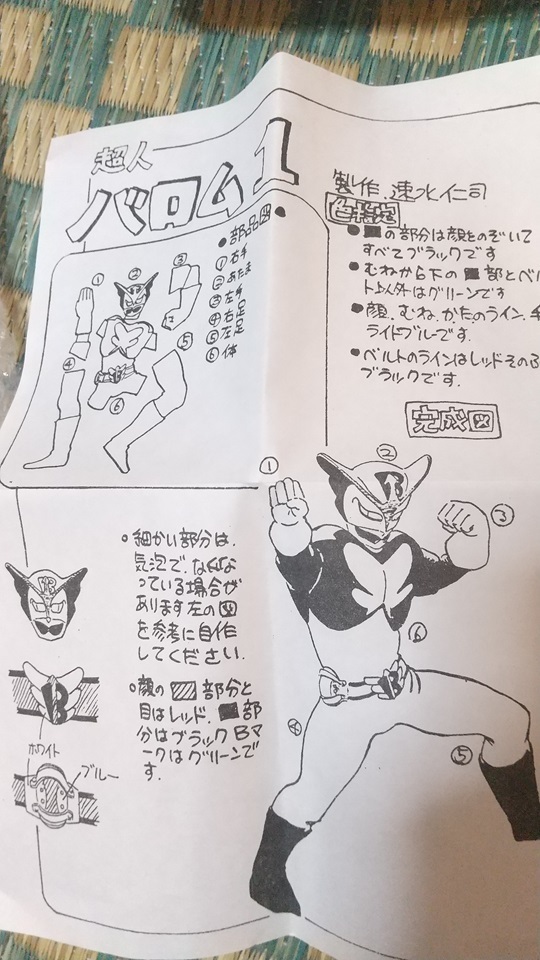 超人
バロム1
製作 速水仁司
色指定
●■の部分は顔をのぞいて
すべてブラックです
●むねから下の■部とベル
ト以外はグリーンです
●顔、むね、かたのライン、手
ライトブルーです.
●ベルトのラインはレッドその
ブラックです.
●部品図●
①右手
②あたま
③左手
④右足
⑤左足
⑥体
①
②
③
④
⑤
⑥
完成図
①
②
③
⑥
④
⑤
○細かい部分は、
気泡で、なくな
っている場合が
あります左の図
を参考に自作
してください.
○顔の▨部分と
目はレッド、■部
分はブラックBマ
ークはグリーンで
す.
B
B
B
ホワイト
ブルー